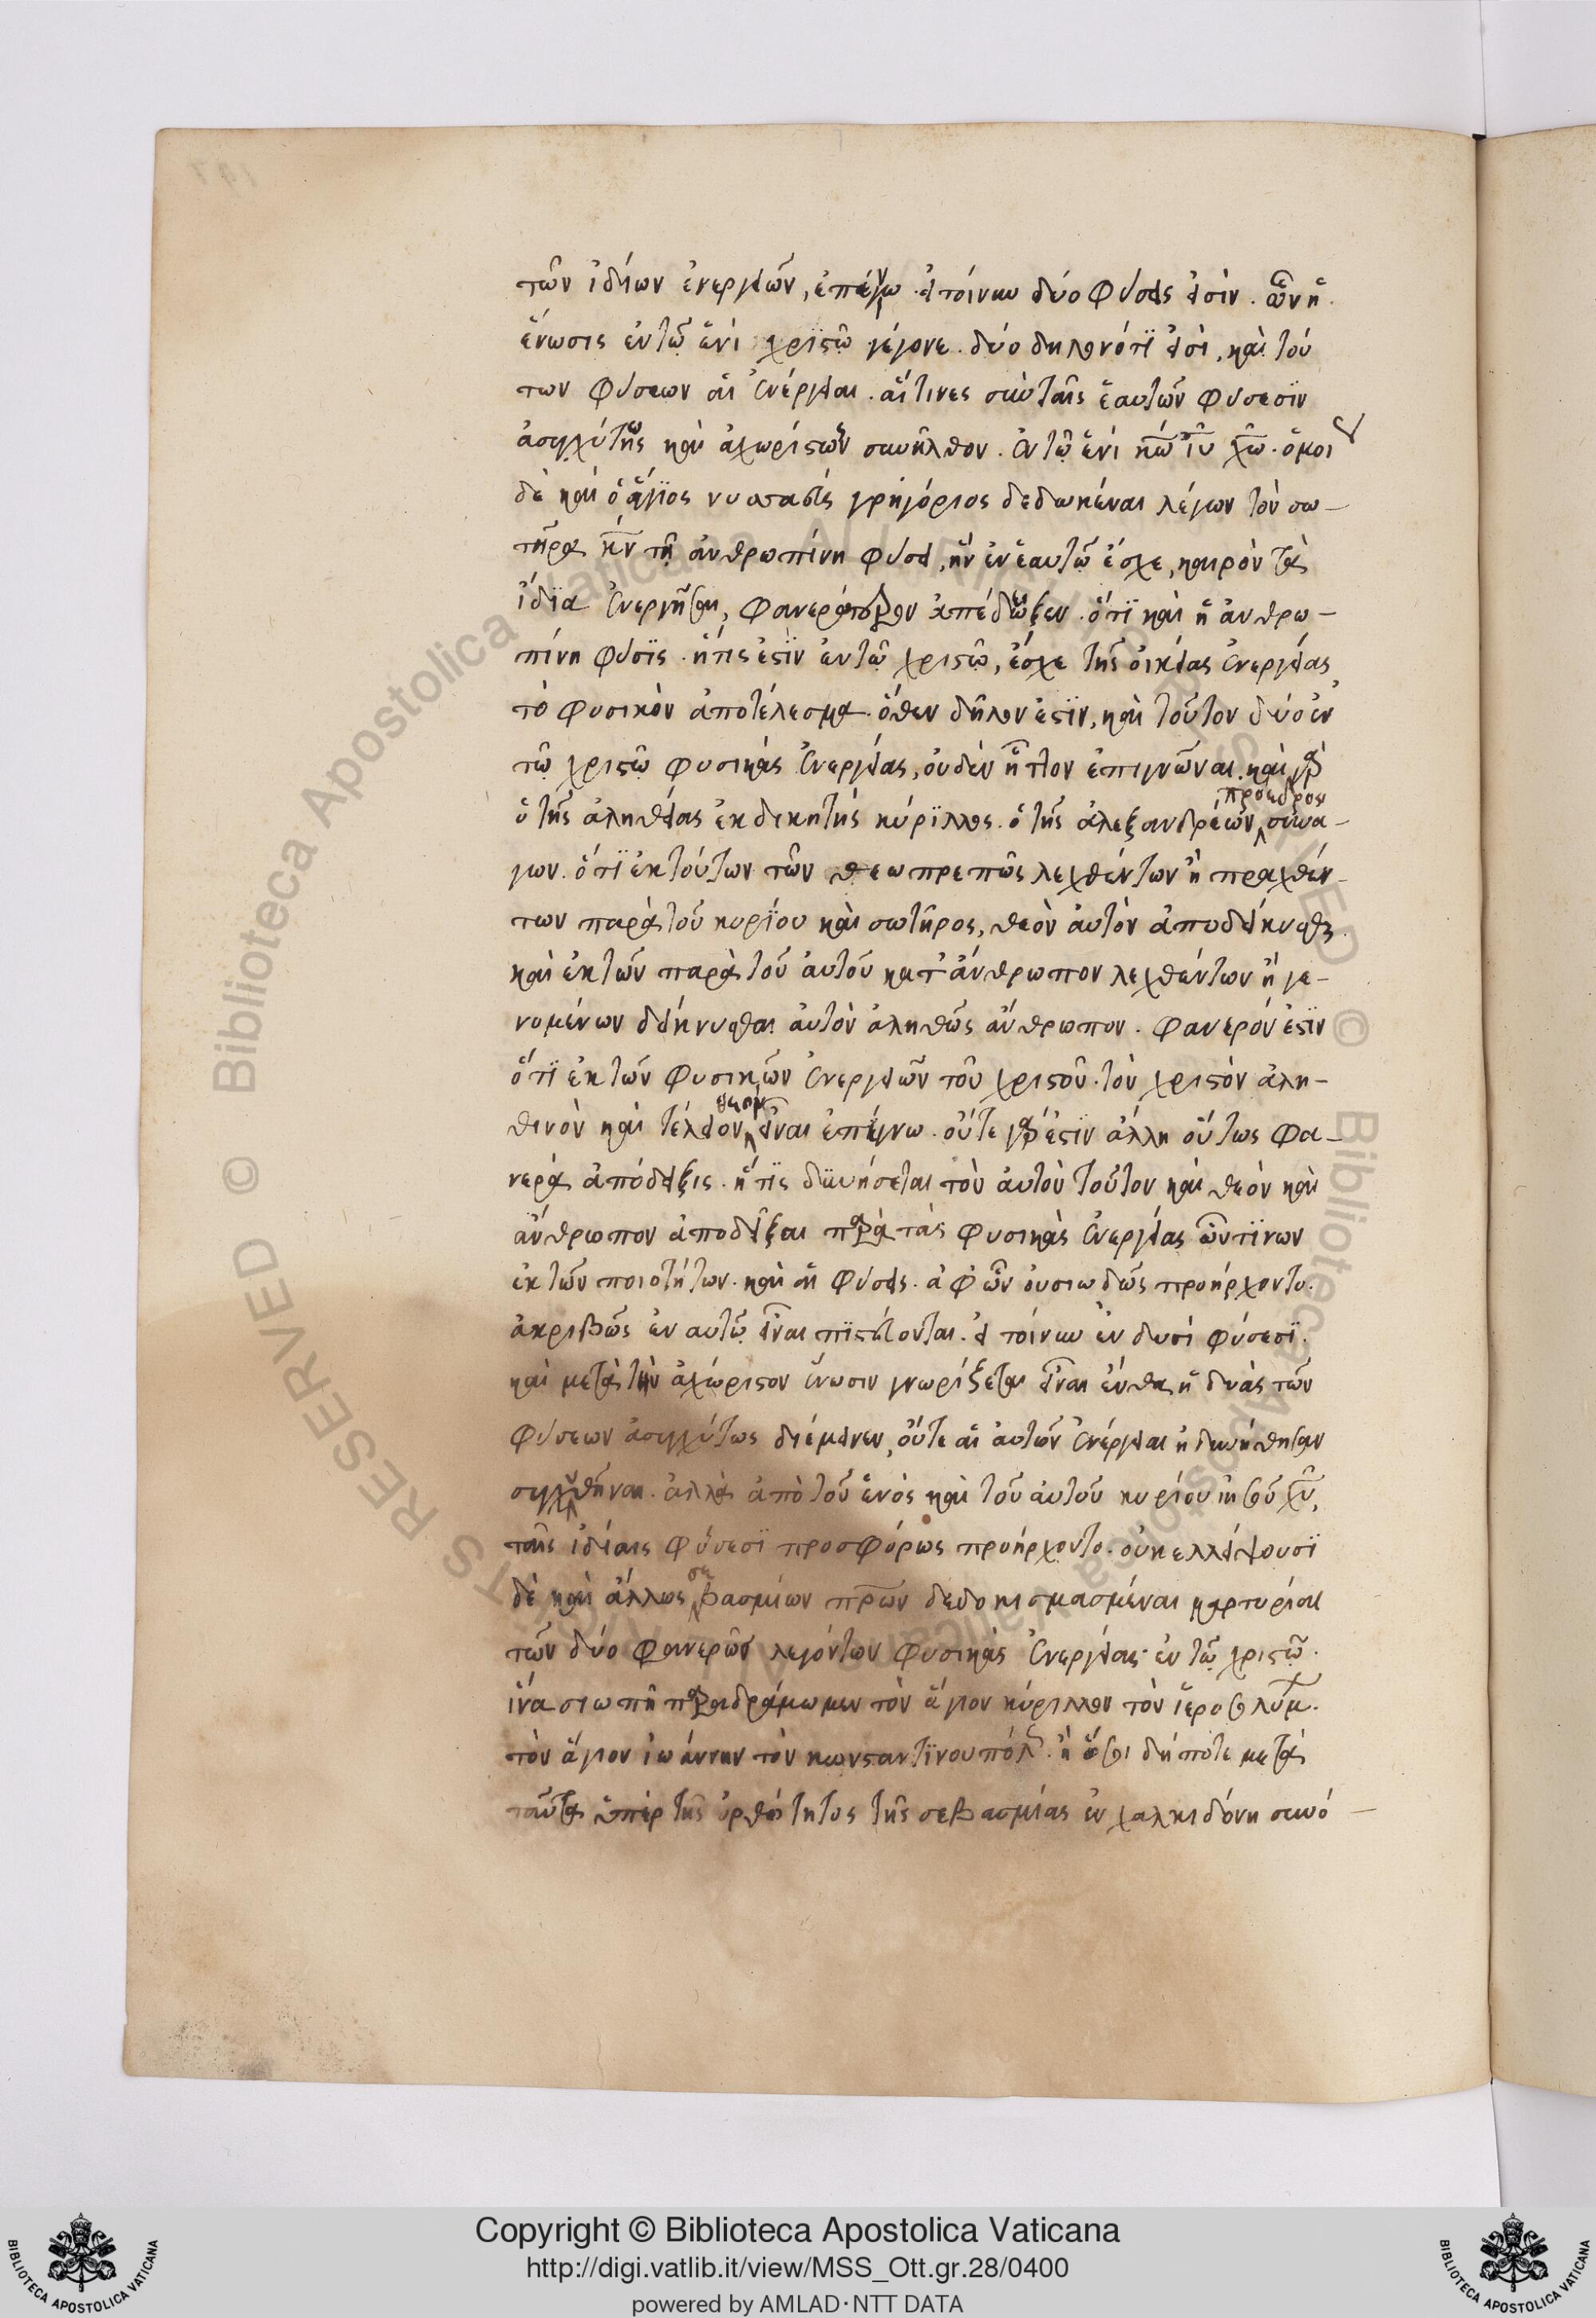 τῶν ἰδίων ἐνεργειῶν, ἐπέγνω. εἰ τοίνυν δύο φύσεις εἰσὶν. ὧν ἡ
ἕνωσις ἐν τῷ ἑνὶ χριστῷ γέγονε. δύο δηλονότι εἰσὶ, καὶ τού
των φύσεων αἱ ἐνέργειαι. αἵτινες σὺν ταῖς ἑαυτῶν φύσεσιν
ἀσυγχύτως καὶ ἀχωρίστως συνῆλθον. ἐν τῷ ἑνὶ κῶ ἰυ χῶ. ὅμοι
δὲ καὶ ὁ ἅγιος γρηγόριος δεδωκέναι λέγων τὸν σω-
τῆρα κν τῇ ἀνθρωπίνη φύσει, ἣν ἐν ἑαυτῷ ἔσχε, καιρὸν τὰ
ἴδια ἐνεργῆσαι, ἀπέδειξεν. ὅτι καὶ ἡ ἀνθρω-
πίνη φύσις. ἥτις ἐστὶν ἐν τῷ χριστῷ, ἔσχε τῆς οἰκείας ἐνεργείας
τὸ φυσικὸν ἀποτέλεσμα. ὅθεν δῆλον ἐστὶν, καὶ τοῦτον δύο ἐν
τῷ χριστῷ φυσικὰς ἐνεργείας, οὐδὲν ἧττον ἐπιγνῶναι. καὶ γὰρ
ὁ τῆς ἀληθείας ἐκδικητὴς κύριλλος. ὁ τῆς ἀλεξανδρέων πρόεδρος συνα-
γων. ὅτι ἐκ τούτων τῶν θεωπρεπῶς λεχθέντων ἢ πραχθέν-
των παρὰ τοῦ κυρίου καὶ σωτῆρος, θεὸν αὐτὸν ἀποδείκνυσθαι.
καὶ ἐκ τῶν παρὰ τοῦ αὐτοῦ κατ' ἄνθρωπον λεχθέντων ἢ γε-
νομένων δείκνυσθαι αὐτὸν ἀληθῶς ἄνθρωπον. φανερόν ἐστιν
ὅτι ἐκ τῶν φυσικῶν ἐνεργειῶν τοῦ χριστοῦ. τὸν χριστὸν ἀλη-
θινὸν καὶ τέλειον εἶναι ἐπέγνω. οὔτε γάρ ἐστιν ἄλλη οὕτως φα-
νερὰ ἀπόδειξις. ἥτις δυνήσεται τὸν αὐτὸν τοῦτον καὶ θεὸν καὶ
ἄνθρωπον ἀποδεῖξαι παρὰ τὰς φυσικὰς ἐνεργείας ὧντινων
ἐκ τῶν ποιοτήτων. καὶ αἱ φύσεις. ἀφ' ὧν οὐσιωδῶς προήρχοντο.
ἀκριβῶς ἐν αυτῷ εἶναι πιστεύονται. εἰ τοίνυν ἐν δυσὶ φύσεσι.
καὶ μετὰ τὴν ἀχώριστον ἕνωσιν γνωρίζεται εἶναι ἔνθα ἡ δυὰς τῶν
φύσεων ἀσυγχύτως διέμεινεν, οὔτε αἱ αὐτῶν ἐνέργειαι ἠδυνήθησαν
συγχυθῆναι. ἀλλὰ ἀπὸ τοῦ ἑνὸς καὶ τοῦ αὐτοῦ κυρίου ἰησοῦ χυ,
ταῖς ἰδίαις φύσεσι προσφόρως προήρχοντο. οὐκ ελλείψουσι
δὲ καὶ ἄλλως σεβασμίων πρων μαρτυρίαι
τῶν δύο φανερῶς λεγόντων φυσικὰς ἐνεργείας ἐν τῷ χριστῷ.
ἵνα σιωπῇ παραδράμωμεν τὸν ἅγιον κύριλλον τὸν ἱεροσολύμ.
τὸν ἅγιον ἰωάννην τὸν κωνσταντινουπόλ. ἢ ὅσοι δήποτε μετὰ
ταῦτα ὑπὲρ τῆς ὀρθότητος τῆς σεβασμίας ἐν χαλκιδόνη συνό-
Copyright © Biblioteca Apostolica Vaticana
http://digi.vatlib.it/view/MSS_Ott.gr.28/0400
powered by AMLAD·NTT DATA